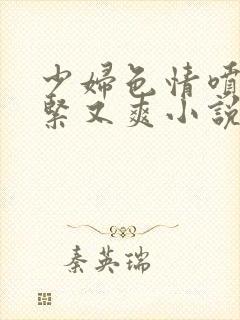 少婦色情噴
緊又爽小説
秦英瑞